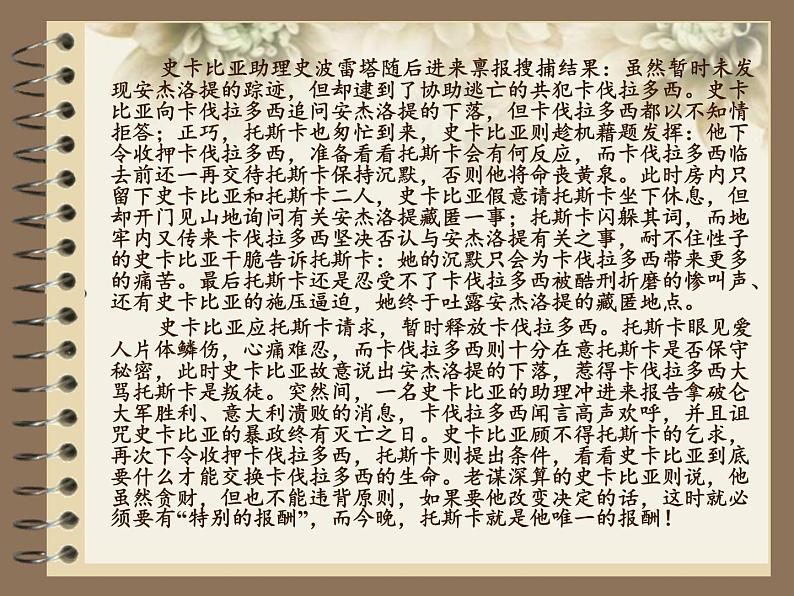 史卡比亚助理史波雷塔随后进来禀报搜捕结果：虽然暂时未发
现安杰洛提的踪迹，但却逮到了协助逃亡的共犯卡伐拉多西。史卡
比亚向卡伐拉多西追问安杰洛提的下落，但卡伐拉多西都以不知情
拒答；正巧，托斯卡也匆忙到来，史卡比亚则趁机藉题发挥：他下
令收押卡伐拉多西，准备看看托斯卡会有何反应，而卡伐拉多西临
去前还一再交待托斯卡保持沉默，否则他将命丧黄泉。此时房内只
留下史卡比亚和托斯卡二人，史卡比亚假意请托斯卡坐下休息，但
却开门见山地询问有关安杰洛提藏匿一事；托斯卡闪躲其词，而地
牢内又传来卡伐拉多西坚决否认与安杰洛提有关之事，耐不住性子
的史卡比亚干脆告诉托斯卡：她的沉默只会为卡伐拉多西带来更多
的痛苦。最后托斯卡还是忍受不了卡伐拉多西被酷刑折磨的惨叫声、
还有史卡比亚的施压逼迫，她终于吐露安杰洛提的藏匿地点。
史卡比亚应托斯卡请求，暂时释放卡伐拉多西。托斯卡眼见爱
人片体鳞伤，心痛难忍，而卡伐拉多西则十分在意托斯卡是否保守
秘密，此时史卡比亚故意说出安杰洛提的下落，惹得卡伐拉多西大
骂托斯卡是叛徒。突然间，一名史卡比亚的助理冲进来报告拿破仑
大军胜利、意大利溃败的消息，卡伐拉多西闻言高声欢呼，并且诅
咒史卡比亚的暴政终有灭亡之日。史卡比亚顾不得托斯卡的乞求，
再次下令收押卡伐拉多西，托斯卡则提出条件，看看史卡比亚到底
要什么才能交换卡伐拉多西的生命。老谋深算的史卡比亚则说，他
虽然贪财，但也不能违背原则，如果要他改变决定的话，这时就必
须要有“特别的报酬”，而今晚，托斯卡就是他唯一的报酬！